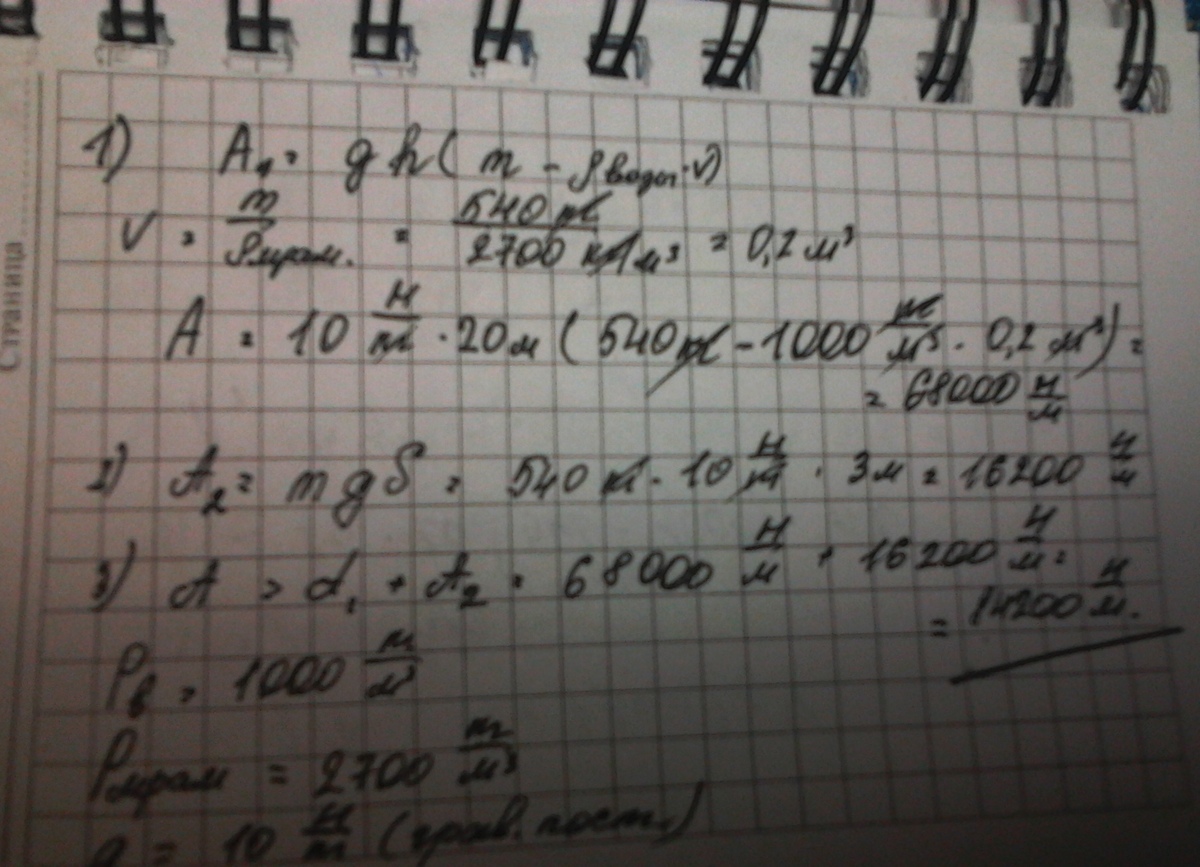 Страница
1) A₁ = gh(m - ρводы·V)
V = m/ρмрам. = 540 кг/2700 кг/м³ = 0,2 м³
A = 10 Н/кг · 20м (540кг - 1000 кг/м³ · 0,2 м³) =
= 68000 Н/м
2) A₂ = mgS = 540 кг · 10 Н/кг · 3м = 16200 Н/м
3) A = A₁ + A₂ = 68000 Н/м + 16200 Н/м =
= 14200 Н/м.
ρв = 1000 кг/м³
ρмрам = 2700 кг/м³
g = 10 Н/кг (грав. пост.)